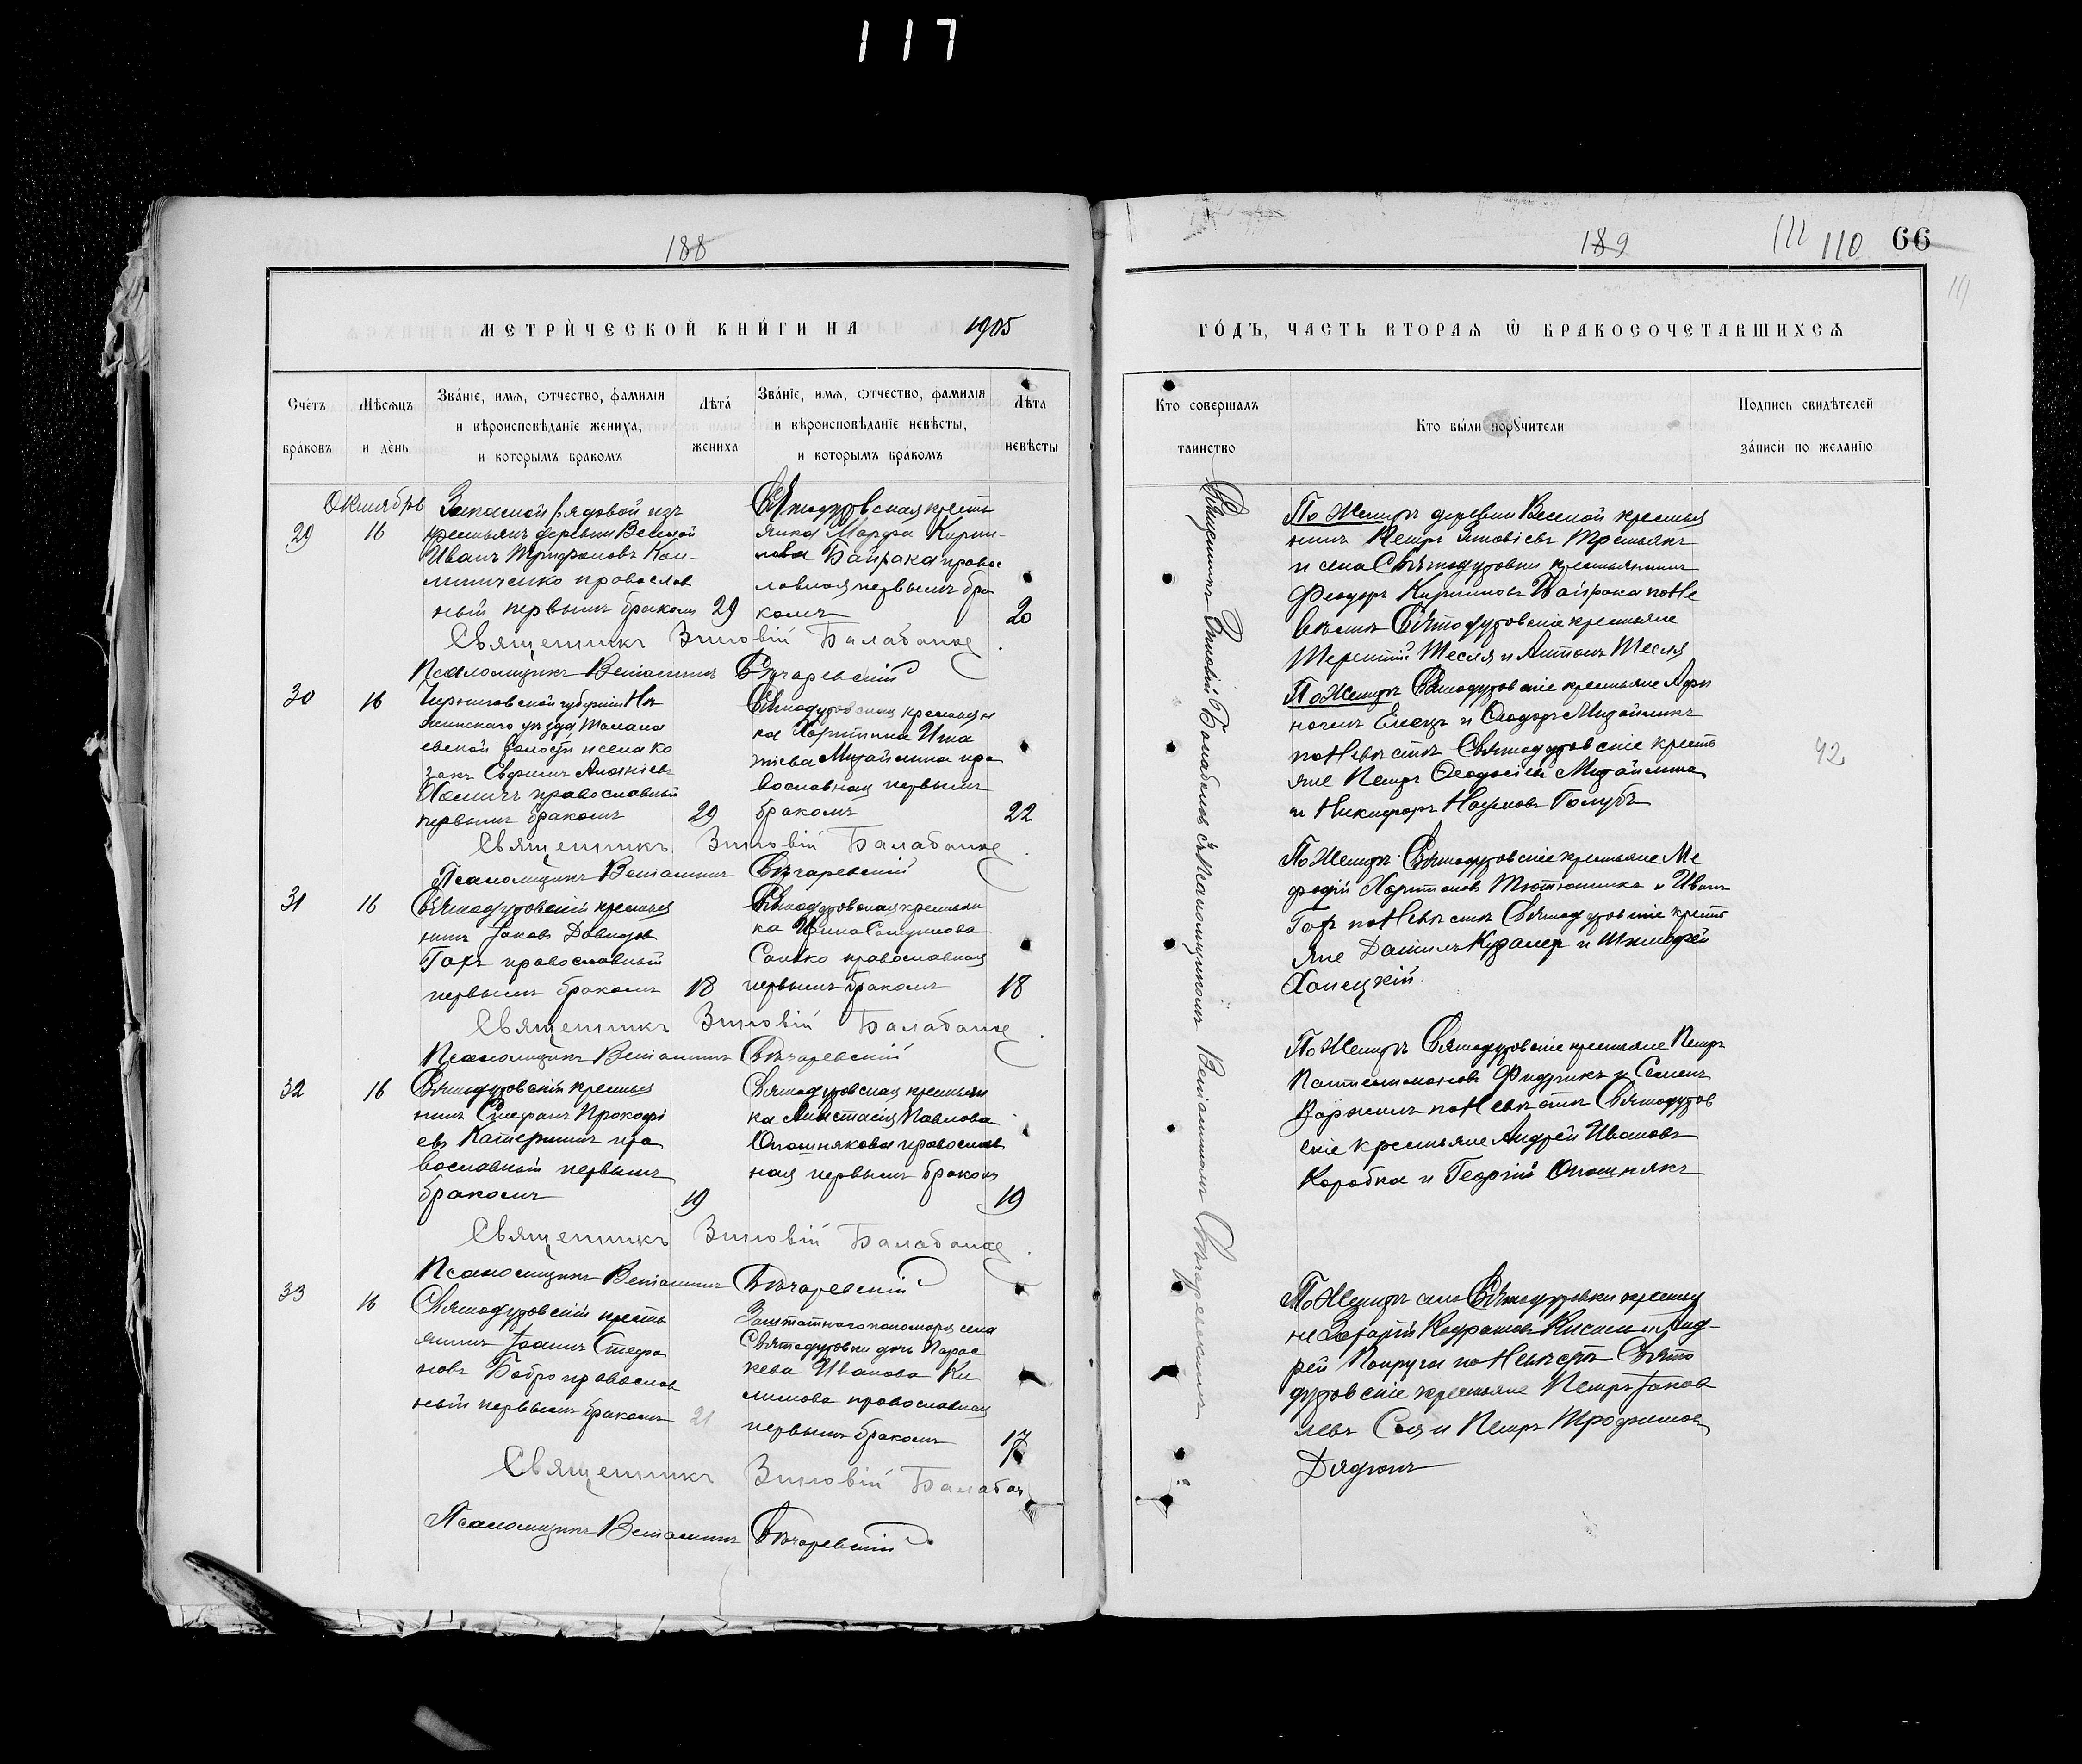 117
188
МЕТРИ́ЧЕСКОЙ КНИ́ГИ НА 1905
Сче́тъ бра́ковъ
Мѣ́сѧцъ и де́нь
Зва́нїе, имѧ, ѻтчество, фамилїѧ и вѣроисповѣ́данїе жениха̀, и которымъ бракомъ
Лѣта́ жениха
Зва́нїе, имѧ, ѻтчество, фамилїѧ и вѣроисповѣ́данїе невѣ́сты, и которымъ бра́комъ
Лѣта невѣсты
Октябрь
29
16
Запасной рядовой изъ
крестьянъ деревни Веселой
Иванъ Трифоновъ Кал-
линиченко православ
ный первымъ бракомъ
29
Святодуховская кресть
янка Марфа Кирил-
лова Байрака правос
лавная первымъ бра
комъ
20
Священникъ Зиновій Балабанов
Псаломщикъ Веніаминъ Бѣчаревскій
30
16
Черниговской губерніи Нѣ
жинскаго уѣзда
евской волости и села ко
закъ Евфимъ Ананіевъ
Хоменчъ православный
первымъ бракомъ
29
Святодуховская крестьян
ка Харитина Игна
тіева Михайлина пра
вославная первымъ
бракомъ
22
Священникъ Зиновій Балабанов
Псаломщикъ Веніаминъ Бѣчаревскій
31
16
Святодуховскій крестья
нинъ Іаковъ Давидов
Гохъ православный
первымъ бракомъ
18
Святодуховская крестьян
ка Ирина Самуилова
Санько православная
первымъ бракомъ
18
Священникъ Зиновій Балабанов
Псаломщикъ Веніаминъ Бѣчаревскій
32
16
Святодуховскій крестья
нинъ Стефанъ Прокофі
евъ Катеринич пра
вославный первымъ
бракомъ
19
Святодуховская крестьян
ка Анастасія Павлова
Опошнякова православ
ная первымъ бракомъ
19
Священникъ Зиновій Балабанов
Псаломщикъ Веніаминъ Бѣчаревскій
33
16
Святодуховскій кресть
янинъ Іоаннъ Стефа
новъ Бобро православ
ный первымъ бракомъ
21
Заштатного пономаря села
Святодуховки дочь Парас
кева Иванова Кли
лимова православная
первымъ бракомъ
17
Священникъ Зиновій Балабан
Псаломщикъ Веніаминъ Бѣчаревскій
189
111 110 66
ГО́ДЪ, ЧАСТЬ ВТОРАѦ Ѿ БРАКОСОЧЕТАВШИХСѦ
Кто соверша́лъ таинство
Кто бы́ли порꙋчители
Подпись свидѣтелей за́писи по желанїю
Священникъ Зиновій Балабановъ съ Псаломщикомъ Веніаминомъ Бѣчаревскимъ
По Женихѣ деревни Веселой крестья
нинъ Петръ Зиновіевъ Третьякъ
и села Святодуховки крестьянинъ
Феодоръ Кирилловъ Байрака по Не
вѣстѣ Святодуховскіе крестьяне
Терентій Тесля и Антонъ Тесля
По Женихѣ Святодуховскіе крестьяне Афи
ногенъ Елецъ и Ѳеодоръ Михайликъ
по Невѣстѣ Святодуховскіе кресть
яне Петръ Ѳеодосіевъ Михайлина
и Никифоръ Наумовъ Голубъ
92
По Женихѣ Святодуховскіе крестьяне Ме
фодій Харитоновъ Тютюникъ и Иванъ
Гохъ по Невѣстѣ Святодуховскіе кресть
яне Даніилъ Кузалер и Тимофей
Хонецкій.
По Женихѣ Святодуховскіе крестьяне Петръ
Пантелимоновъ Фидрикъ и Семенъ
по Невѣстѣ Святодухов
скіе крестьяне Андрей Ивановъ
Коробка и Георгій Опошнякъ
По Женихѣ села Святодуховки крестья
не Захарій Кодратовъ Кисиль и Анд-
рей Попруга по Невѣстѣ Свято
духовскіе крестьяне Петръ Іаков
левъ Сая и Петръ Трофимовъ
Дядюнъ